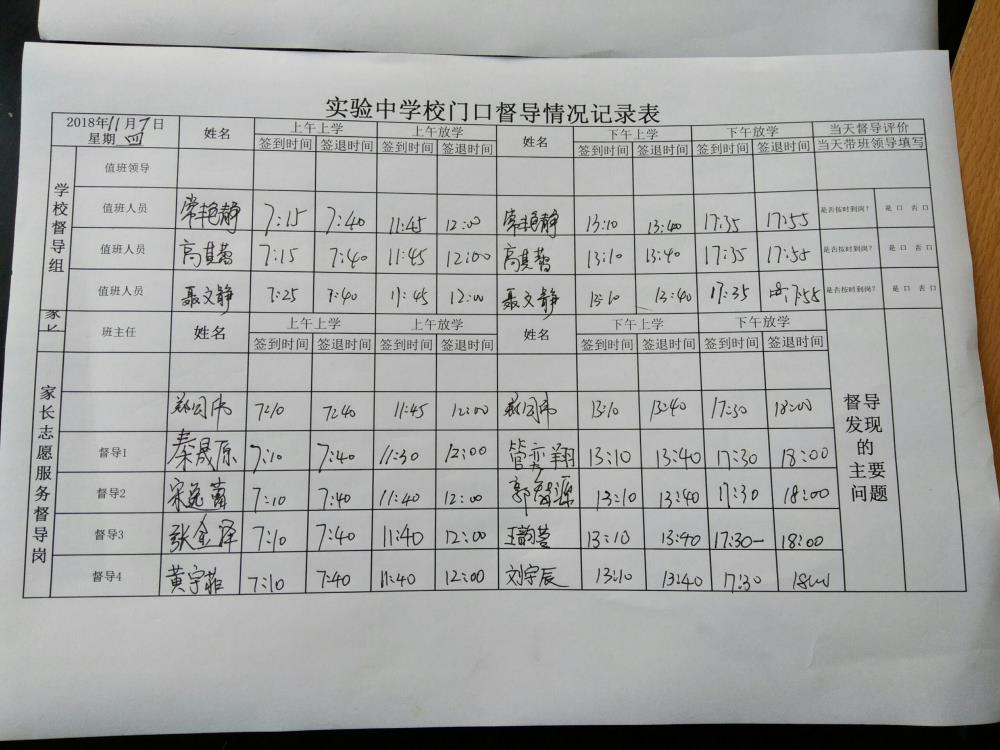 实验中学校门口督导情况记录表
2018年11月 日 姓名 上午上学 上午放学 姓名 下午上学 下午放学 当天督导评价
星期 四 签到时间 签退时间 签到时间 签退时间 签到时间 签退时间 签到时间 签退时间 当天带班领导填写
学校督导组
值班领导
值班人员 常艳静 7:15 7:40 11:45 12:00 常艳静 13:10 13:40 17:35 17:55 是否按时到岗? 是 口 否 口
值班人员 高其 7:15 7:40 11:45 12:00 高其 13:10 13:40 17:35 17:55 是否按时到岗? 是 口 否 口
值班人员 聂文静 7:25 7:40 11:45 12:00 聂文静 13:10 13:40 17:35 17:55 是否按时到岗? 是 口 否 口
家长
班主任 姓名 上午上学 上午放学 姓名 下午上学 下午放学
签到时间 签退时间 签到时间 签退时间 签到时间 签退时间 签到时间 签退时间
家长志愿服务督导岗
7:10 7:40 11:45 12:00 13:10 13:40 17:30 18:00
督导1 秦晟原 7:10 7:40 11:30 12:00 管奕翔 13:10 13:40 17:30 18:00
督导2 宋逸 7:10 7:40 11:40 12:00 郭 源 13:10 13:40 17:30 18:00
督导3 张金泽 7:10 7:40 11:40 12:00 王韵 13:10 13:40 17:30 18:00
督导4 黄宇 7:10 7:40 11:40 12:00 刘宇辰 13:10 13:40 17:30 18:00
督导
发现
的
主要
问题